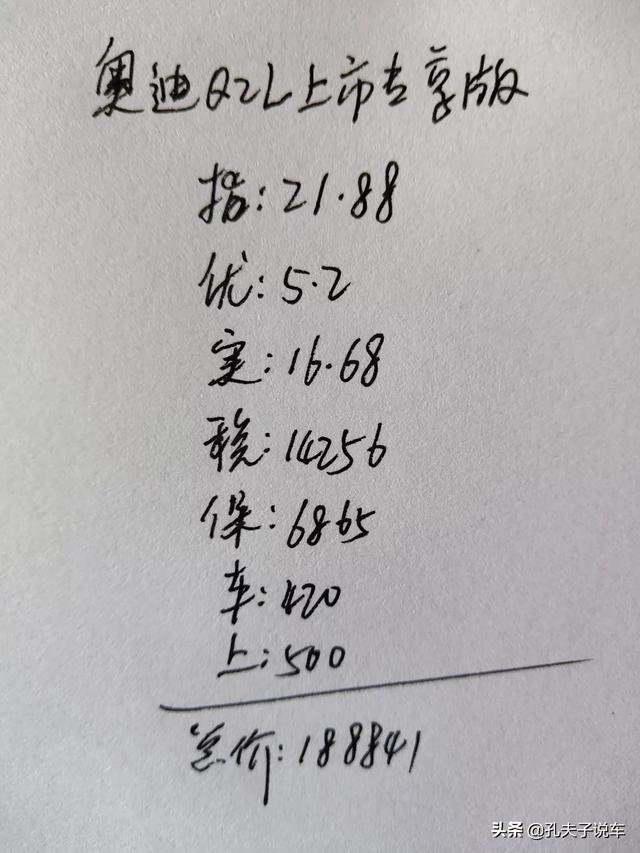 奥迪Q2L上市专享版
指:21.88
优:5.2
实:16.68
税:14256
保:6865
车:420
上:500
总价:188841
头条 @孔夫子说车